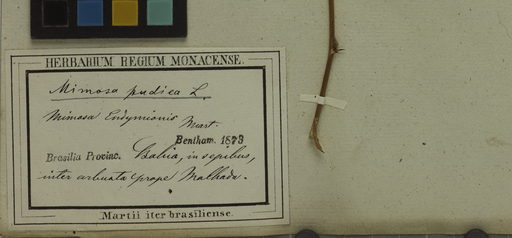 HERBARIUM REGIUM MONACENSE.
Mimosa pudica L.
Mimosa Endymionis Mart.
Bentham. 1873
Brasilia Provinc. Bahia, in sepibus,
inter arbusta prope Malhada.
Martii iter brasiliense.